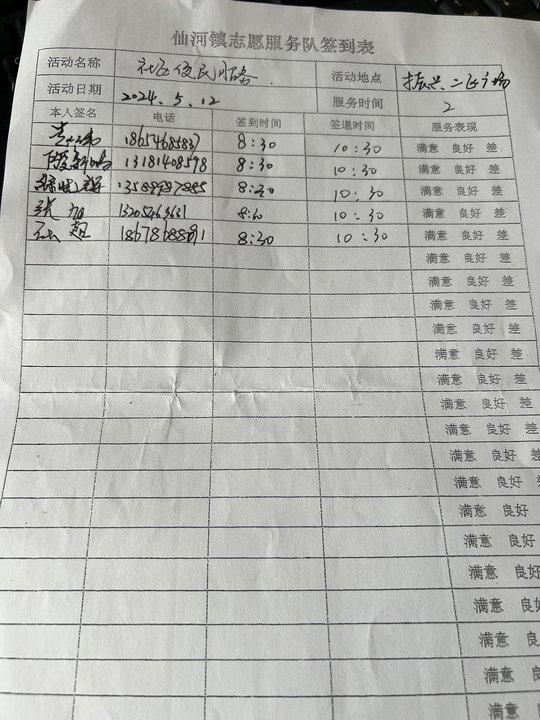 仙河镇志愿服务队签到表
活动名称 社区便民服务 活动地点 振兴二区广场
活动日期 2024.5.12 服务时间 2
本人签名 电话 签到时间 签退时间 服务表现
18654685837 8:30 10:30 满意 良好 差
13181408578 8:30 10:30 满意 良好 差
8:30 10:30 满意 良好 差
张 10:30 满意 良好 差
8:30 10:30 满意 良好 差
满意 良好 差
满意 良好 差
满意 良好 差
满意 良好 差
满意 良好 差
满意 良好 差
满意 良好 差
满意 良好 差
满意 良好 差
满意 良好 差
满意 良好
满意 良好
满意 良好
满意 良好
满意 良好
满意 良好
满意 良好